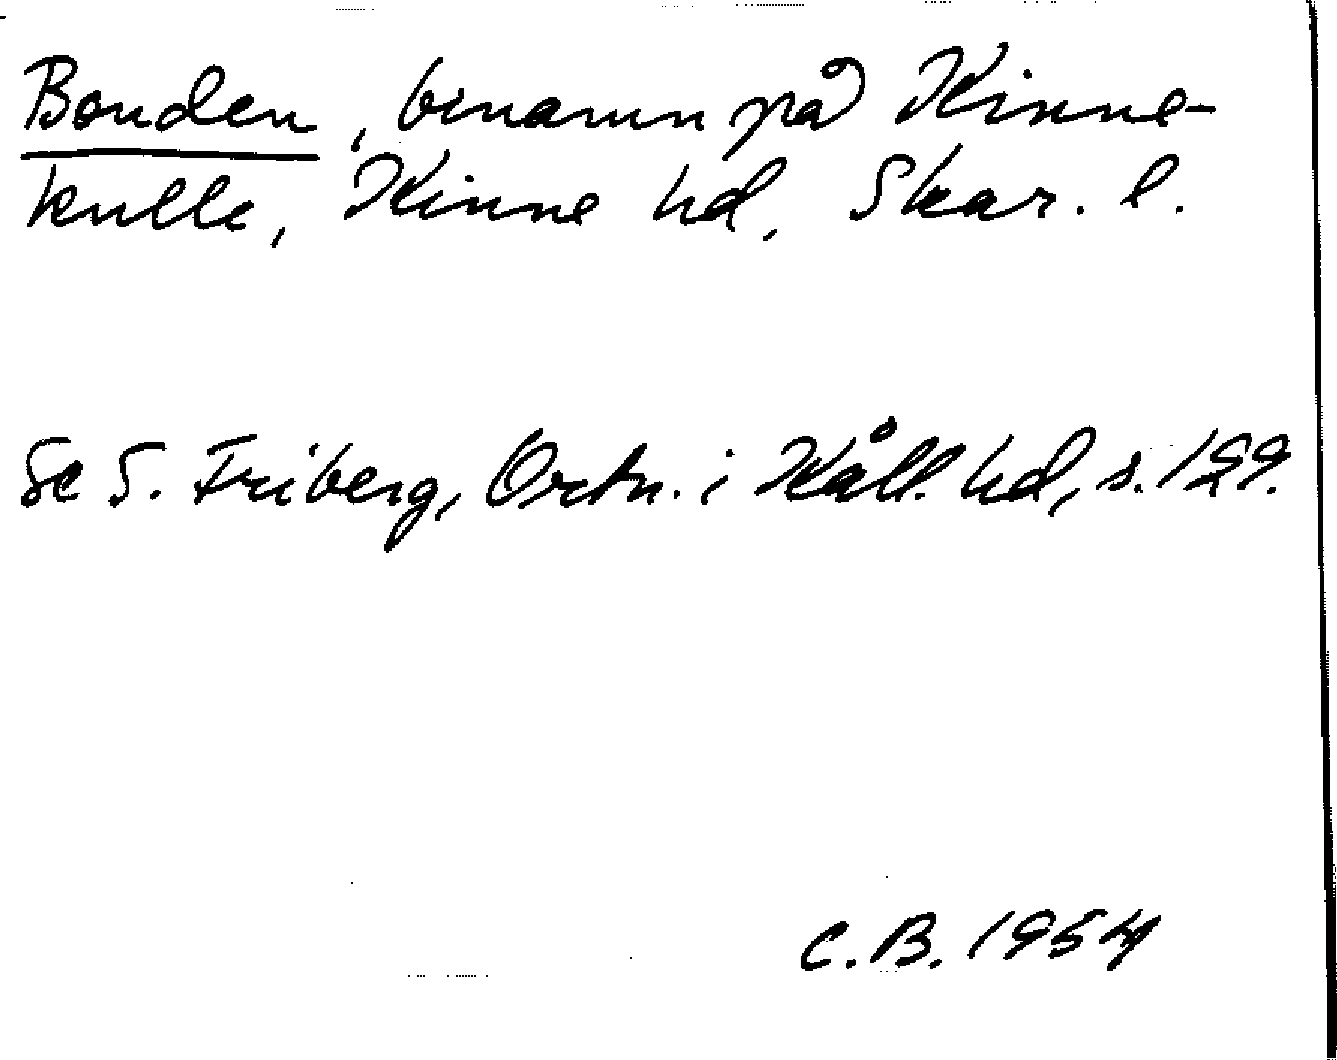 Bonden, binamn på Kinne-
kulle, Kinne hd, Skar. l.
Se S. Friberg, Ortn. i Kåll. hd, s. 199.
C.B. 1954